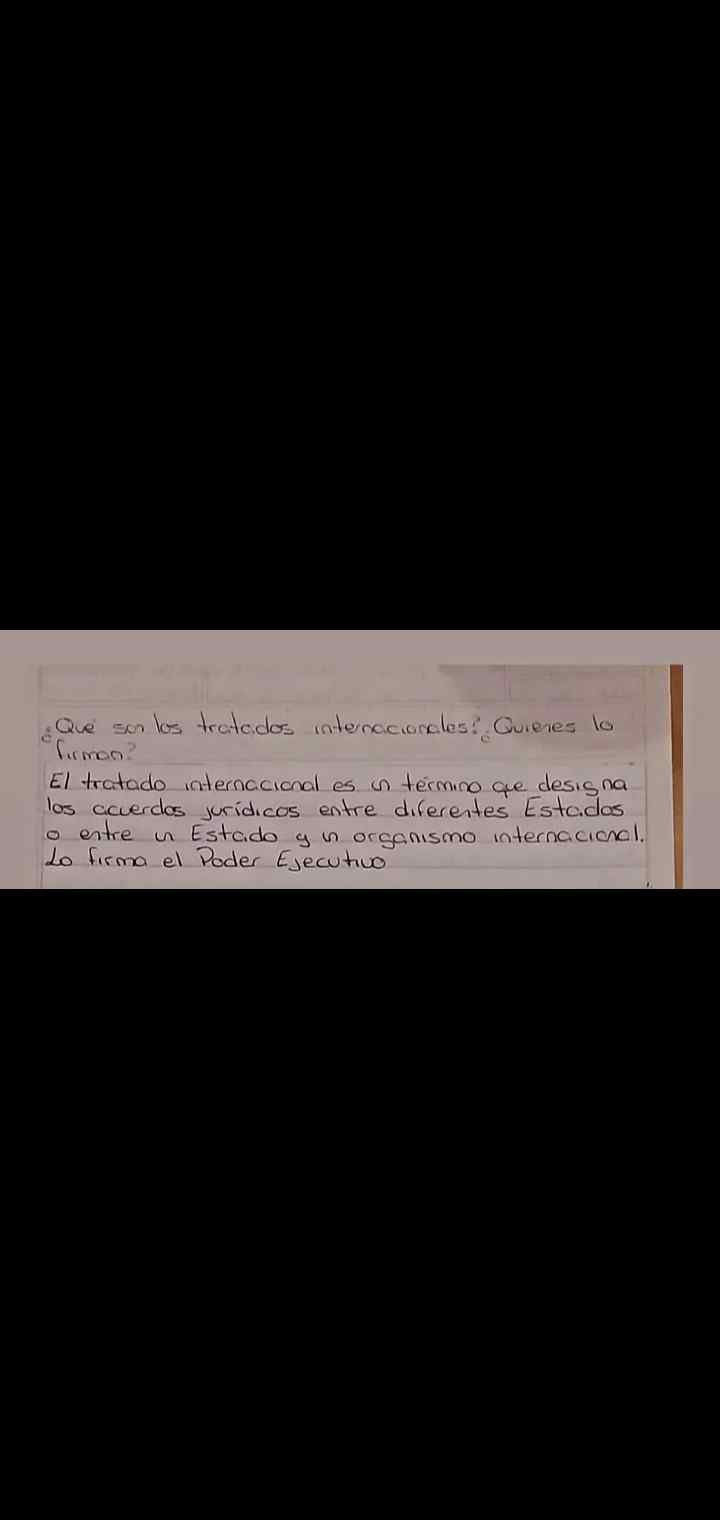 ¿Qué son los tratados internacionales? ¿Quienes lo
firman?
El tratado internacional es un término que designa
los acuerdos jurídicos entre diferentes Estados
o entre un Estado y un organismo internacional.
Lo firma el Poder Ejecutivo